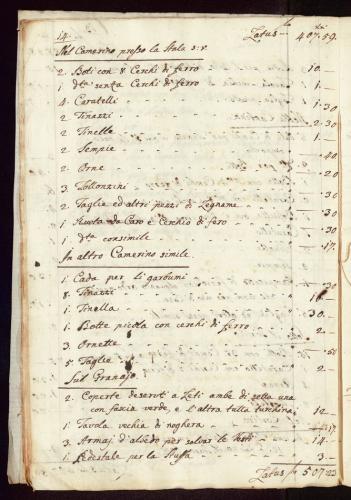 14. Latus f 407.59.
Nel Camerino presso la Stala
2. Boti con 8 Cerchi di ferro 10.—
1. dta senza Cerchi di ferro 1.—
4. Caratelli
2. Tinazzi 2.30
2. Tinelle 1.—
2. Sempie —.40
2. Orne —.20
3. Follonzini —.30
2. Taglie ed altri pezzi di Legname —.30
1. Ruota da Caro e Cerchio di fero —.30
1. dta consimile —.17.
In altro Camerino simile.
1. Cada per li gardumi —.30
8. Tinazzi 16.—
1. Tinella —.30
1. Botte picola con cerchi di ferro 2.—
3. Ornette
5. Taglie 2.—
Sul Granajo
2. Coperte de servir a Leti ambe di
con fascia verde, e l'altra tutta turchina 12.—
1. Tavola vechia di noghera
3. Armaj d'albedo per salvar le 14.—
1. Pedestale per la Stuffa 3.—
Latus f 507.23